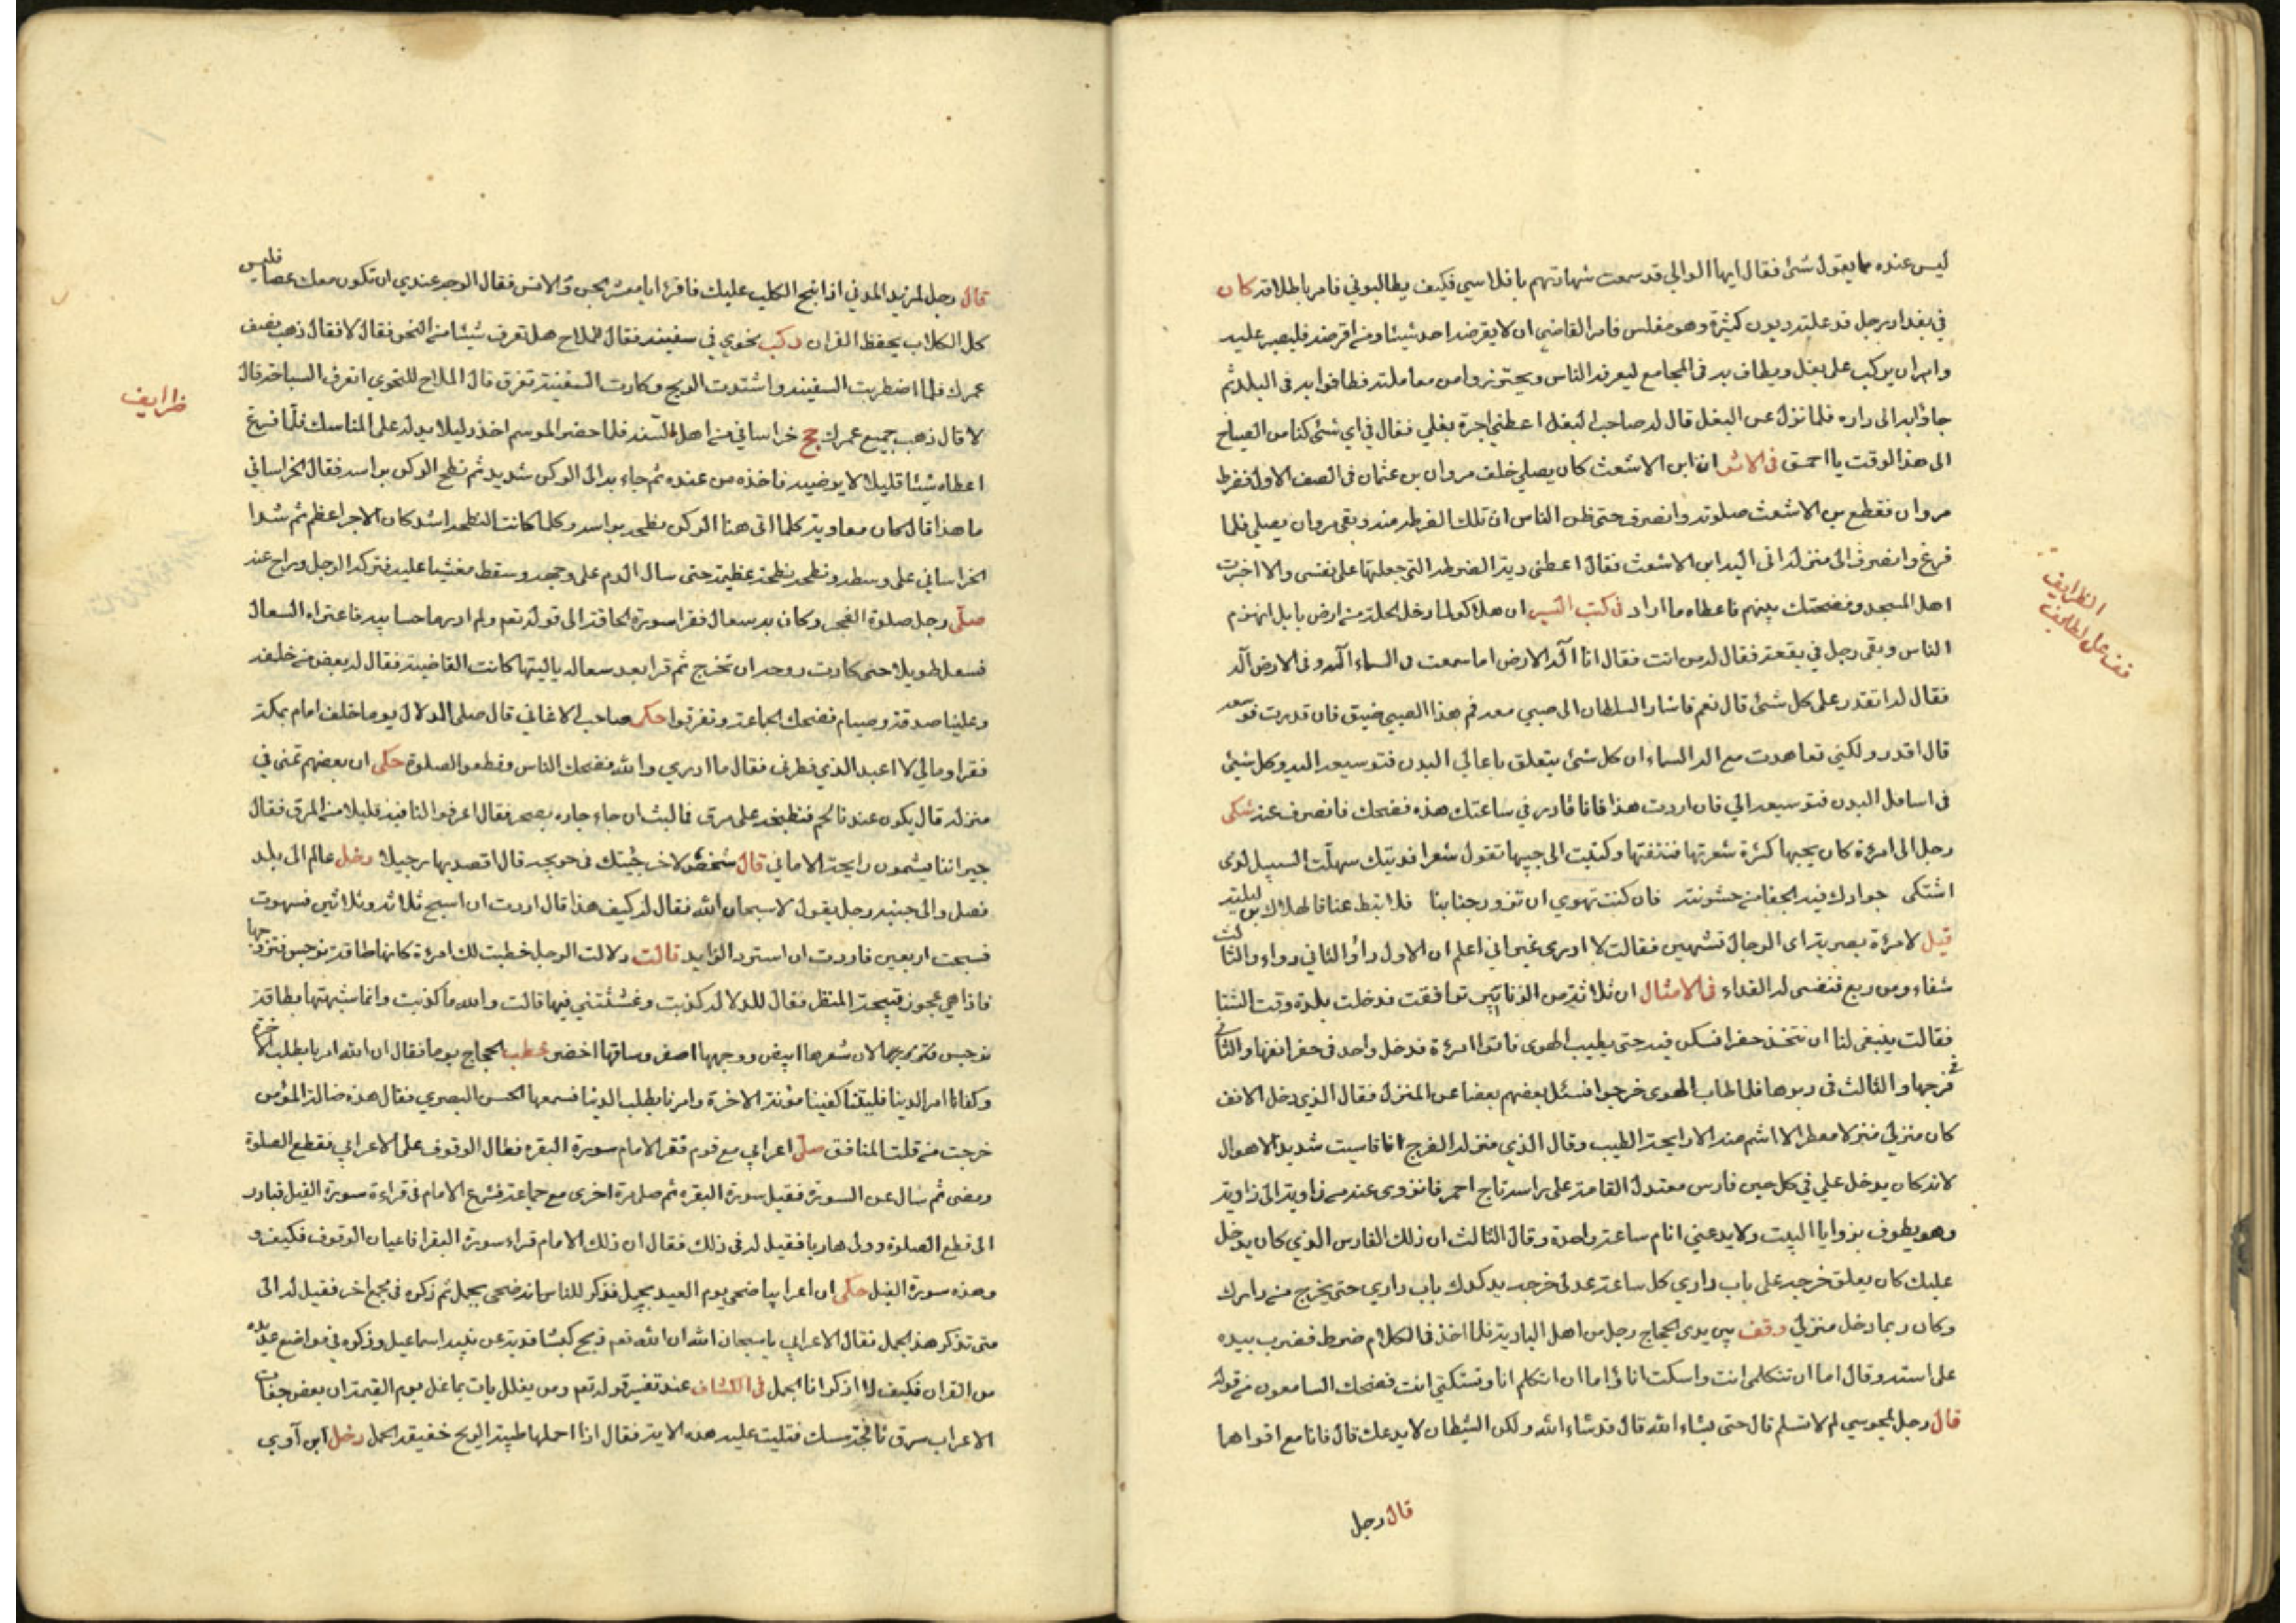 ليس عنده ما يقول شئ فقال ايها الوالي قد سمعت شهادتهم بافلاسي فكيف يطالبوني فامر باطلاقه كان
في بغداد رجل قد علته ديون كثيرة وهو مفلس فامر القاضي ان لا يقرضه احد شيئا ومن اقرضه فليصبر عليه
وامر ان يركب على بغل ويطاف به في المجامع ليعرفه الناس ويحترزوا من معاملته فطافوا به في البلد ثم
جاؤا به الى داره فلما نزل عن البغل قال له صاحب البغل اعطني اجرة بغلي فقال في اي شئ كنا من الصباح
الى هذا الوقت يا احمق في الاثر ان ابن الاشعث كان يصلي خلف مروان بن عثمان في الصف الاول فضرط
مروان فقطع بن الاشعث صلوته وانصرف حتى ظن الناس ان تلك الضرطه منه وبقى مروان يصلي فلما
فرغ وانصرف الى منزله اتى اليه ابن الاشعث فقال اعطني دية الضرطه التي جعلتها على نفسى والا اخبرت
اهل المسجد وفضحتك بينهم فاعطاه ما اراد في كتب السير ان هلاكو لما دخل الحلة من ارض بابل انهزم
الناس وبقى رجل في بقعة فقال له من انت فقال انا اله الارض اما سمعت في السماء اله وفى الارض اله
فقال له اتقدر على كل شئ قال نعم فاشار السلطان الى صبي معه فم هذا الصبي ضيق فان قدرت فوسعه
قال اقدر ولكني تعاهدت مع اله السماء ان كل شئ يتعلق باعالي البدن فتوسيعه اليه وكل شئ
في اسافل البدن فتوسيعه الي فان اردت هذا فانا قادر في ساعتك هذه فضحك فانصرف عنه شكى
رجل الى امرءة كان يحبها كثرة شعرتها فنتفتها وكتبت الى حبيبها تقول شعرا فديتك سهلت السبيل لذى
اشتكى جوادك فيه الجفا من خشونته فان كنت تهوى ان تزور جنابنا فلا تبط عنا فالهلاك بن ليلته
قيل لامرءة بصرية اى الرجال تشتهين فقالت لا ادرى غير اني اعلم ان الاول داؤ الثاني دواء والثالث
شفاء ومن ربع فنفسى له الفداء في الامثال ان ثلاثة من الزنابير توافقت فدخلت بلدة وقت الشتا
فقالت ينبغى لنا ان نتخذ حفرا نسكن فيه حتى يطيب الهوى فاتوا امرءة فدخل واحد في حفر انفها والثاني
في فرجها والثالث في دبرها فلما طاب الهوى خرجوا فسئل بعضهم بعضا عن المنزل فقال الذي دخل الانف
كان منزلي منزلا معطرا لا اشم منه الا رايحة الطيب وقال الذي منزله الفرج انا قاسيت شديد الاهوال
لانه كان يدخل علي في كل حين فارس معتدل القامة على راسه تاج احمر فانزوى عنه من زاوية الى زاوية
وهو يطوف بزوايا البيت ولا يدعني انام ساعة واحدة وقال الثالث ان ذلك الفارس الذي كان يدخل
عليك كان يعلق خرجه على باب داري كل ساعة عدلى خرجه يدكدك باب داري حتى يخرج من دارك
وكان ربما دخل منزلي وقف بين يدى الحجاج رجل من اهل البادية فلما اخذ في الكلام ضرط فضرب بيده
على استه وقال اما ان تتكلمى انت واسكت انا واما ان اتكلم انا وتسكتي انت فضحك السامعون من قوله
قال رجل لمجوسي لم لا تسلم قال حتى يشاء الله قال قد شاء الله ولكن الشيطان لا يدعك قال فانا مع اقواهما
قال رجل
الظرايف
قف على لطايف
قال رجل لمزيد المدني اذا نبح الكلب عليك فاقرء يا معشر الجن والانس فقال الوجه عندي ان تكون معك عصا فليس
كل الكلاب يحفظ القران ركب نحوي في سفينة فقال للملاح هل تعرف شيئا من النحو فقال لا فقال ذهب نصف
عمرك فلما اضطربت السفينه واشتدت الريح وكادت السفينة تغرق قال الملاح للنحوي اتعرف السباحة قال
لا قال ذهب جميع عمرك حج خراساني من اهل السنه فلما حضر الموسم اخذ دليلا يدله على المناسك فلما فرغ
اعطاه شيئا قليلا لا يرضيه فاخذه من عنده ثم جاء به الى الركن شديد ثم نطح الركن براسه فقال الخراساني
ما هذا قال كان معاوية كلما اتى هنا الركن نطحه براسه وكلما كانت النطحه اشد كان الاجر اعظم ثم شد
الخراساني على وسطه ونطحه نطحة عظيمة حتى سال الدم على وجهه وسقط مغشيا عليه فتركه الرجل وراح عنه
صلى رجل صلوة الفجر وكان به سعال فقرا سورة الحاقة الى قوله تعم ولم ادر ما حسابيه فاعتراه السعال
فسعل طويلا حتى كادت روحه ان تخرج ثم قرا بعد سعاله يا ليتها كانت القاضية فقال له بعض من خلفه
وعلينا صدقة وصيام فضحك الجماعة وتفرقوا حكى صاحب الاغاني قال صلى الدلال يوما خلف امام بمكة
فقرا ومالي لا اعبد الذي فطرني فقال ما ادري والله فضحك الناس وقطعوا الصلوة حكى ان بعضهم تمنى في
منزله قال يكون عندنا لحم فنطبخه على مرق فما لبث ان جاء جاره بصحن فقال اغرفوا لنا فيه قليلا من المرق فقال
جيراننا يشمون رايحة الاماني قال شخص لاخر جئتك في حويجه قال اقصد بها رجيلا دخل عالم الى بلد
فصلى والى جنبه رجل يقول لا سبحان الله فقال له كيف هذا قال اردت ان اسبح ثلاثه وثلاثين فسهوت
فسبحت اربعين فاردت ان استرد الزايد قالت دلالة الرجل خطبت لك امرءة كانها طاقة نرجس فتزوجها
فاذا هي عجوز قبيحة المنظر فقال للدلاله كذبت وغششتني فيها قالت والله ما كذبت وانما شبهتها بطاقة
نرجس لان شعرها ابيض ووجهها اصفر وساقها اخضر خطب الحجاج يوما فقال ان الله امرنا بطلب الاخرة
وكفانا امر الدينا فليتنا كفينا مؤنة الاخرة وامرنا بطلب الدنيا فسمعها الحسن البصري فقال هذه ضالة المؤمن
خرجت من قلب المنافق صلى اعرابي مع قوم فقرا الامام سورة البقره فطال الوقوف على الاعرابي فقطع الصلوة
ومضى ثم سال عن السورة فقيل سورة البقره ثم صلى مرة اخرى مع جماعة فشرع الامام في قراءة سورة الفيل فبادر
الى قطع الصلوة وولى هاربا فقيل له في ذلك فقال ان ذلك الامام قراء سورة البقرا فاعيان الوقوف فكيف و
وهذه سورة الفيل حكى ان اعرابيا ضحى يوم العيد بجمل فذكر للناس انه ضحى بجمل ثم ذكره في مجمع اخر فقيل له الى
متى تذكر هذ الجمل فقال الاعرابي يا سبحان الله ان الله نعم ذبح كبشا فدية عن نبيه اسماعيل وذكره في مواضع عديده
من القران فكيف لا اذكر انا الجمل في الكشاف عند تفسير قوله تعم ومن يغلل يات بما غل يوم القيمة ان بعض جفات
الاعراب سرق نافجة مسك فتليت عليه هذه الاية فقال اذا احملها طيبة الريح خفيفة الحمل دخل ابن آوى
ظرايف